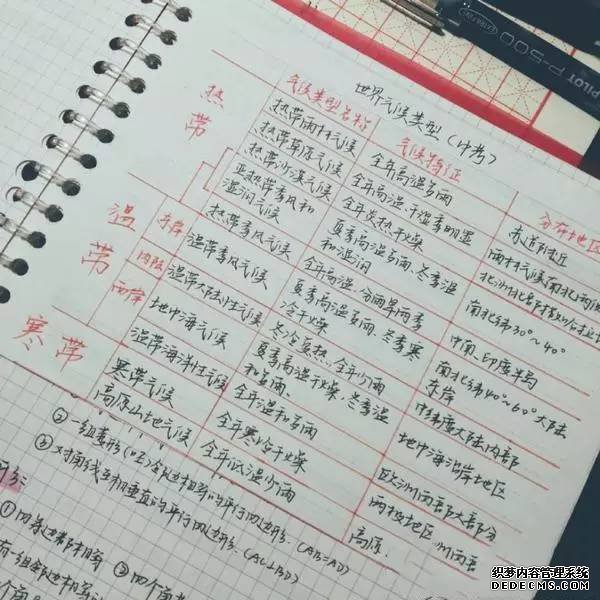 世界气候类型(中考)
热带
气候类型名称 气候特征 分布地区
热带雨林气候 全年高温多雨 赤道附近
热带草原气候 全年高温,干湿季明显 雨林气候南北两侧
热带沙漠气候 全年炎热干燥
亚热带季风和湿润气候 夏季高温多雨、冬季温和湿润 南北纬30°~40°
热带季风气候 全年高温,分两旱两季 中南、印度半岛
温带
东岸 温带季风气候 夏季高温多雨、冬季寒冷干燥 南北纬40°~60°大陆东岸
内陆 温带大陆性气候 冬冷夏热、全年少雨 中纬度大陆内部
西岸 地中海气候 夏季高温干燥、冬季温和多雨. 地中海沿岸地区
温带海洋性气候 全年温和多雨 欧洲西部大部分
寒带
寒带气候 全年寒冷干燥 两极地区
高原山地气候 全年低温少雨 高原.
②一组菱形
③对角线互相垂直的平行四边形. (AC⊥BD)
(AB=AD)
①四条边都相等
PILOT P-500
织梦内容管理系统
DEDECMS.COM